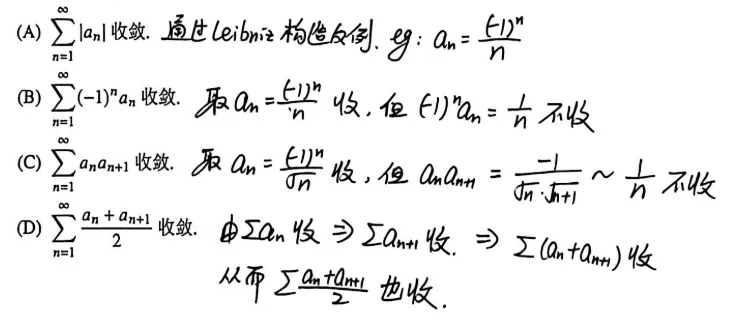 (A) $\sum_{n=1}^{\infty}|a_n|$ 收敛. 通过Leibniz 构造反例. eg: $a_n = \frac{(-1)^n}{n}$
(B) $\sum_{n=1}^{\infty}(-1)^n a_n$ 收敛. 取 $a_n = \frac{(-1)^n}{n}$ 收, 但 $(-1)^n a_n = \frac{1}{n}$ 不收
(C) $\sum_{n=1}^{\infty} a_n a_{n+1}$ 收敛. 取 $a_n = \frac{(-1)^n}{\sqrt{n}}$ 收, 但 $a_n a_{n+1} = \frac{-1}{\sqrt{n} \cdot \sqrt{n+1}} \sim \frac{1}{n}$ 不收
(D) $\sum_{n=1}^{\infty} \frac{a_n + a_{n+1}}{2}$ 收敛. 由 $\Sigma a_n$ 收 $\Rightarrow \Sigma a_{n+1}$ 收. $\Rightarrow \Sigma (a_n + a_{n+1})$ 收
从而 $\Sigma \frac{a_n + a_{n+1}}{2}$ 也收.